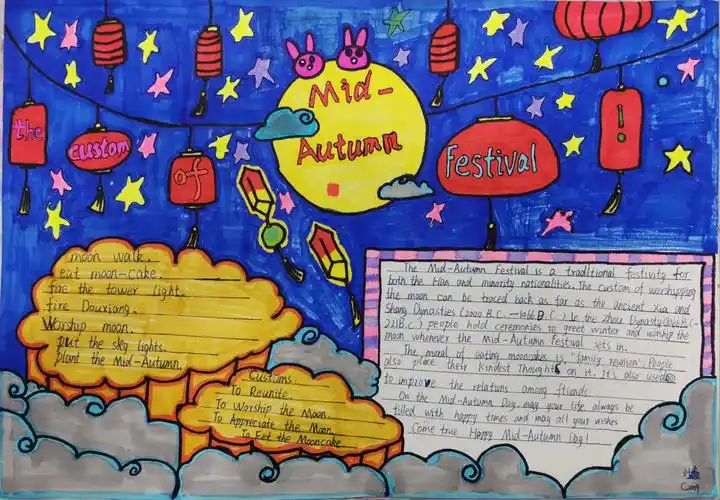 the custom of Mid-Autumn Festival!
moon walk.
eat moon-cake.
fire the tower light.
fire Douxiang.
Worship moon.
put the sky lights.
plant the Mid-Autumn.
Customs.
To Reunite.
To Worship the Moon.
To Appreciate the Moon.
To Eet the Mooncake
The Mid-Autumn Festival is a traditional festivity for
both the Han and minority nationalities. The custom of worshipping
the moon can be traced back as far as the ancient Xia and
Shang Dynasties (2000 B.C. —1066 B.C.) In the Zhou Dynasty(1066 B.C-
221B.C.) people hold ceremonies to greet winter and worship the
moon whenever the Mid-Autumn Festval sets in.
The moral of eating mooncakes is "family reunion". People
also place their kindest thoughts on it. It's also used
to improve the relations among friends
On the Mid-Autumn Day, may your life always be
filled with happy times and may all your wishes
Come true. Happy Mid-Autumn Day!